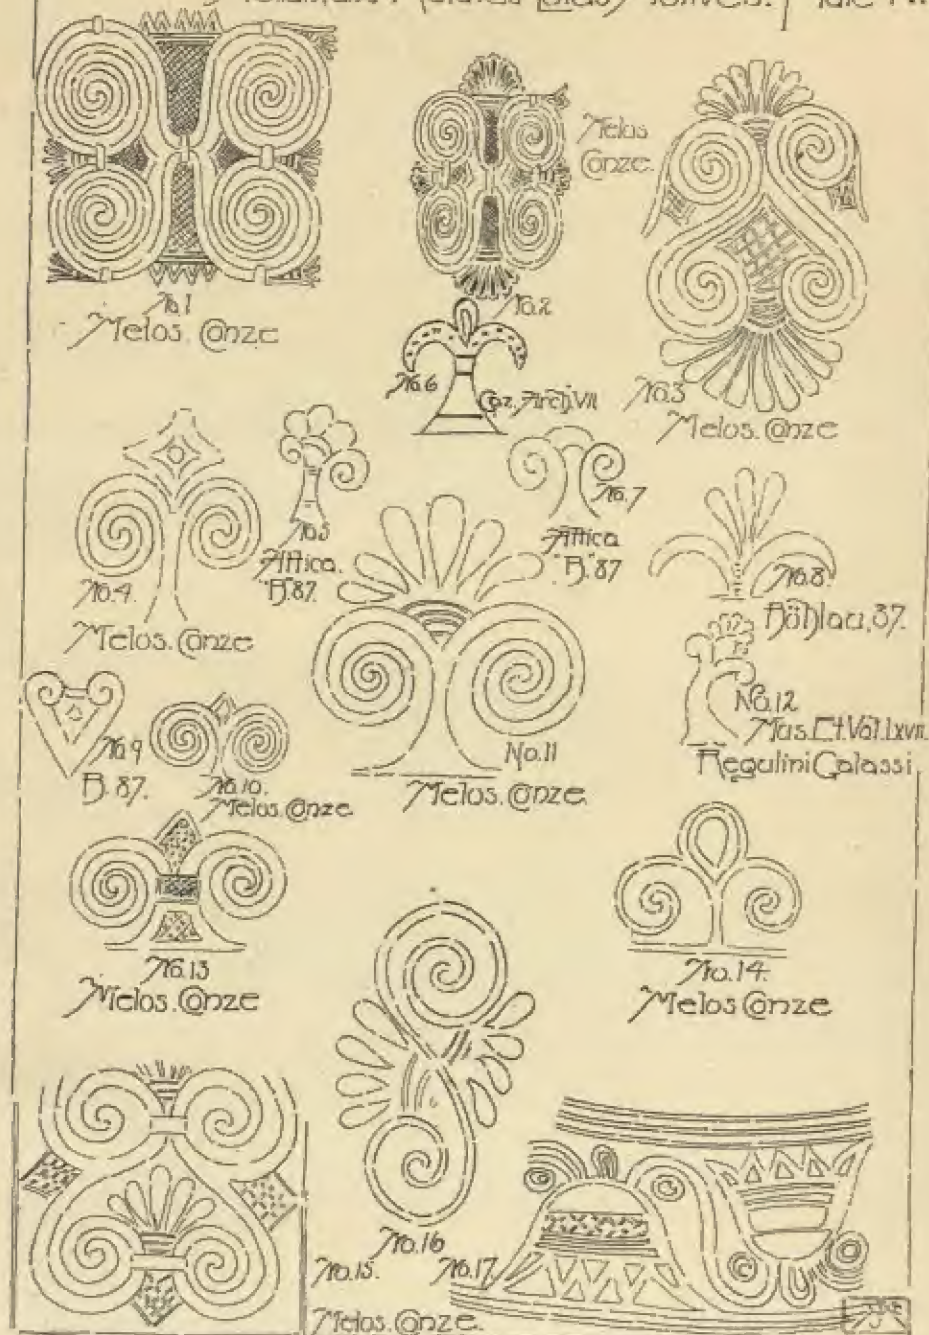 No.1
Melos. Conze
No.2
Melos
Conze.
No.3
Melos. Conze
No.6
Gaz. Arch. VII
No.4.
Melos. Conze
No.5
Attica.
"B." 87.
No.7
Attica
"B." 87
No.8.
Böhlau, 87.
No.9
B. 87.
No.10.
Melos. Conze
No.11
Melos. Conze.
No.12
Mus. Et. Vat. LXVII.
Regulini Galassi
No.13
Melos. Conze
No.14.
Melos Conze
No.15.
No.16
No.17
Melos. Conze.